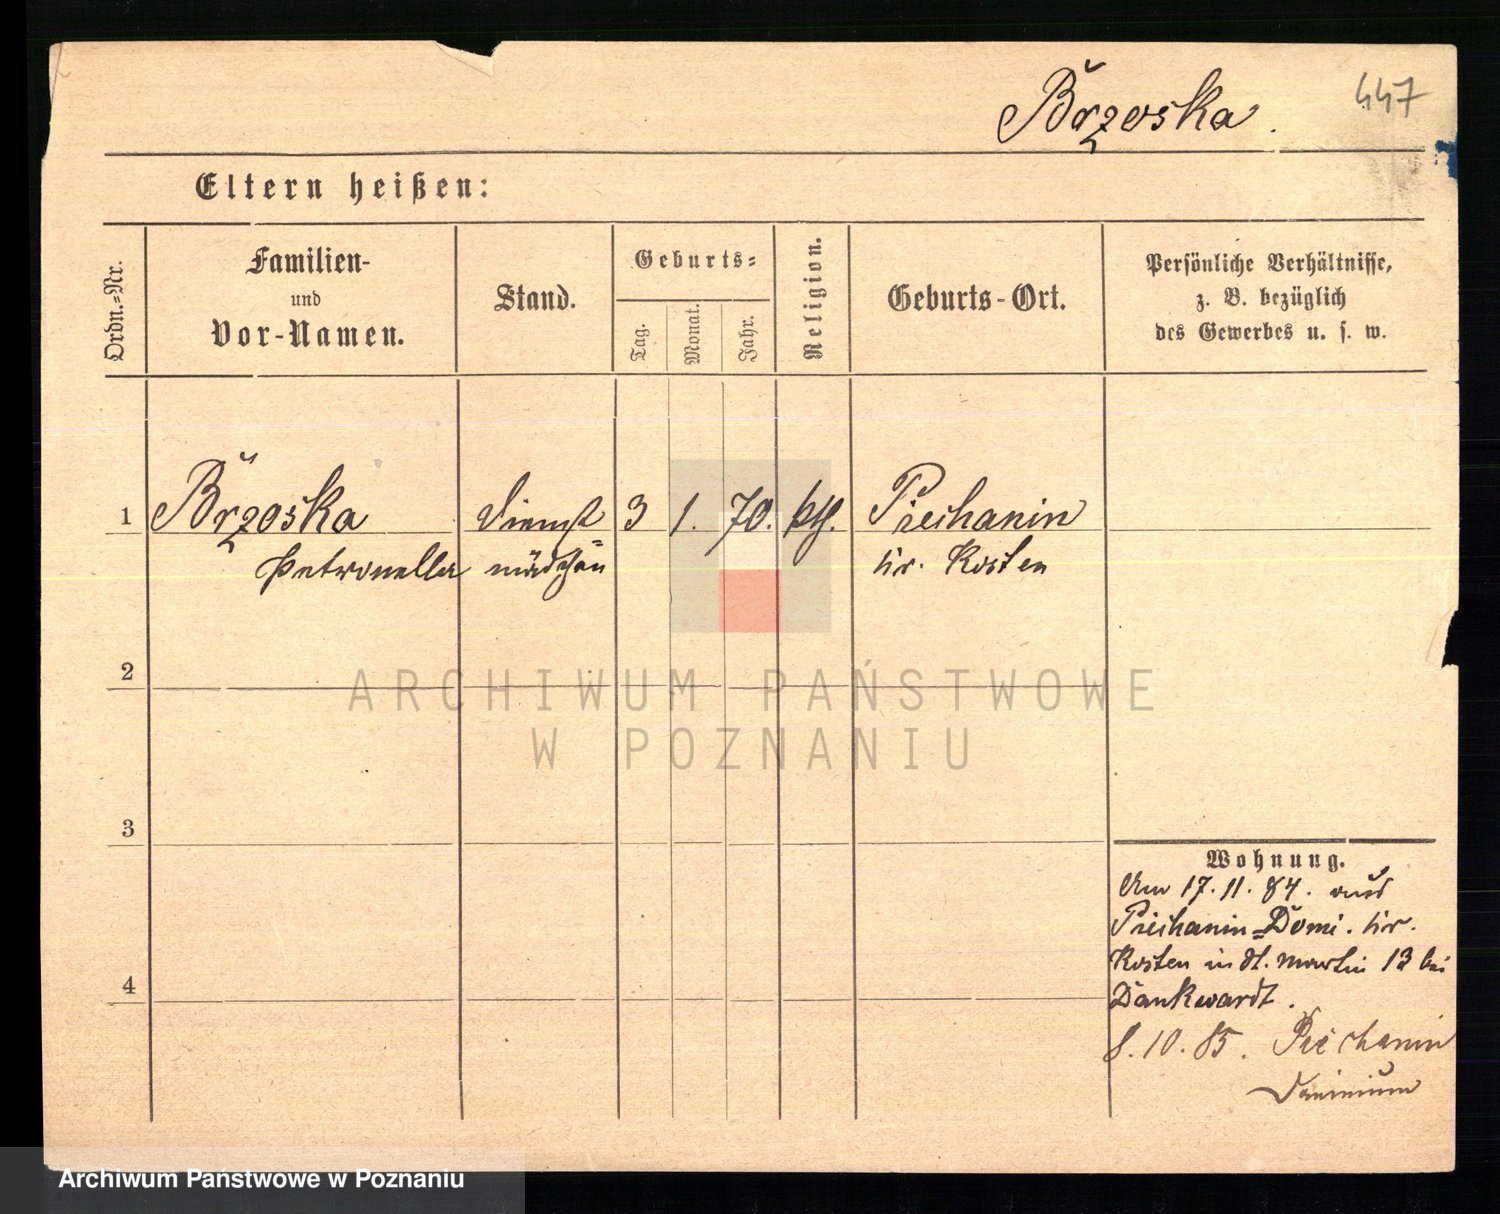 Brzoska.
447
Eltern heißen:
Ordn.=Nr.
Familien-
und
Vor-Namen.
Stand.
Geburts=
Tag.
Monat.
Jahr.
Religion.
Geburts-Ort.
Persönliche Verhältnisse,
z. B. bezüglich
des Gewerbes u. s. w.
1 Brzoska Dienst 3 1. 70. kth. Piechanin
Petronella mädchen kr. Kosten
2
ARCHIWUM PAŃSTWOWE
W POZNANIU
3
4
Wohnung.
Am 17. 11. 84. aus
Piechanin=Domi. kr.
Kosten in St. Martin 13 bei
Dankwardt.
8. 10. 85. Piechanin
Dominium
Archiwum Państwowe w Poznaniu